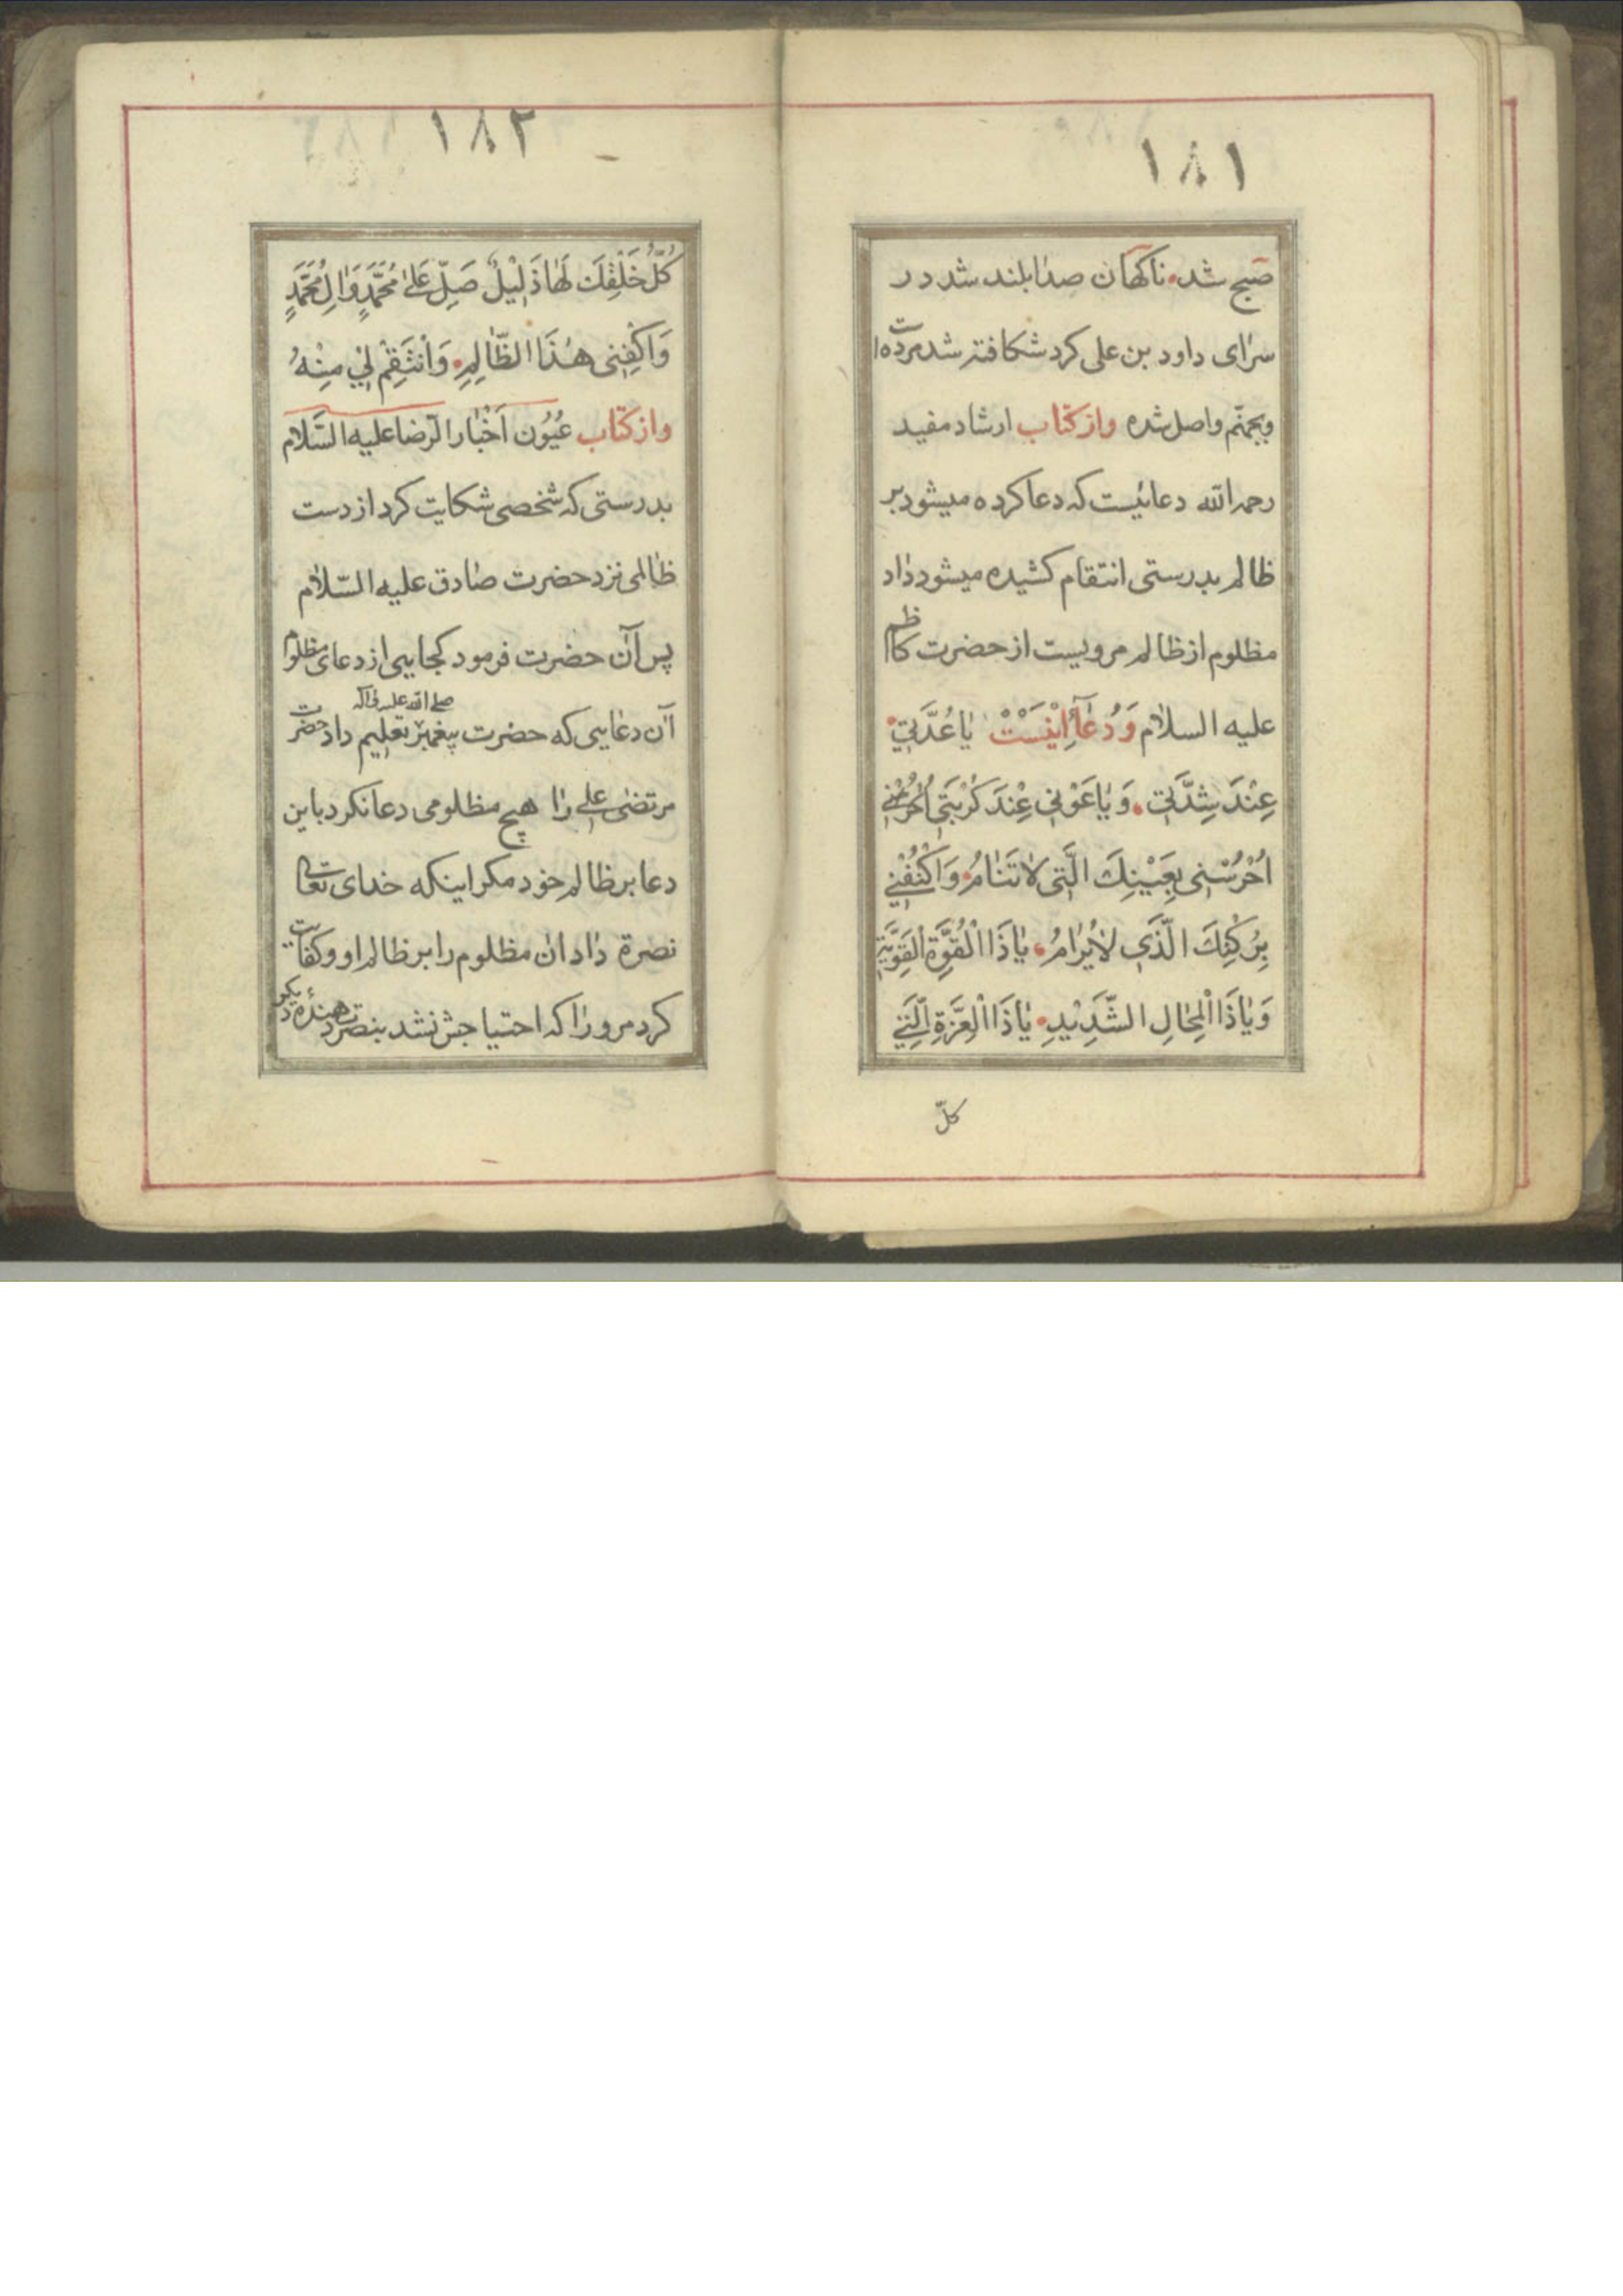 ١٨١
صبح شد ناکهان صدا بلند شد در
سرای داود بن علی کرد شکافته شد مرده
وبجهنّم واصل شده وازکتاب ارشاد مفید
رحمه الله دعائیست که دعا کرده میشود بر
ظالم بدرستی انتقام کشیده میشود داد
مظلوم از ظالم مرویست از حضرت کاظم
علیه السلام وَدُعآ اِینَسْتْ یٰا عُدَّتِی
عِنْدَ شِدَّتِی وَیٰا عَوْنِی عِنْدَ کُرْبَتِی اُحْرُسْنِی
اُحْرُسْنِی بِعَیْنِکَ الَّتِی لٰا تَنٰامُ وَاکْنُفْنِی
بِرُکْنِکَ الَّذِی لٰا یُرٰامُ یٰا ذَا الْقُوَّةِ الْقَوِیَّةِ
وَیٰا ذَا الْمِحٰالِ الشَّدِیْدِ یٰا ذَا الْعِزَّةِ الَّتِی
کلّ
١٨٢
کُلُّ خَلْقِکَ لَهٰا ذَلِیْلٌ صَلِّ عَلیٰ مُحَمَّدٍ وَاٰلِ مُحَمَّدٍ
وَاکْفِنِی هٰذَا الظّٰالِمِ وَانْتَقِمْ لِی مِنْهُ
وازکتاب عُیُون اَخْبٰار الرّضا علیه السّلام
بدرستی که شخصی شکایت کرد از دست
ظالمی نزد حضرت صٰادق علیه السّلام
پس آن حضرت فرمود کجایی از دعای مظلوم
آن دعایی که حضرت پیغمبر صلی الله علیه واله تعلیم داد حضرت
مرتضی علی را هیچ مظلومی دعا نکرد باین
دعا بر ظالم خود مکر اینکه خدای تعالی
نصرة داد ان مظلوم را بر ظالم او وکفایت
کرد مر ورا که احتیاجش نشد بنصرت دهندهٔ دیکر